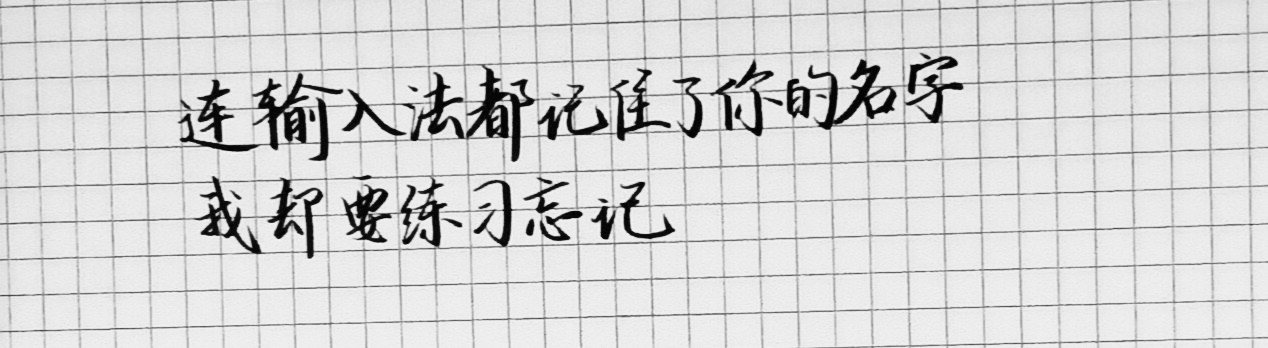 连输入法都记住了你的名字
我却要练习忘记